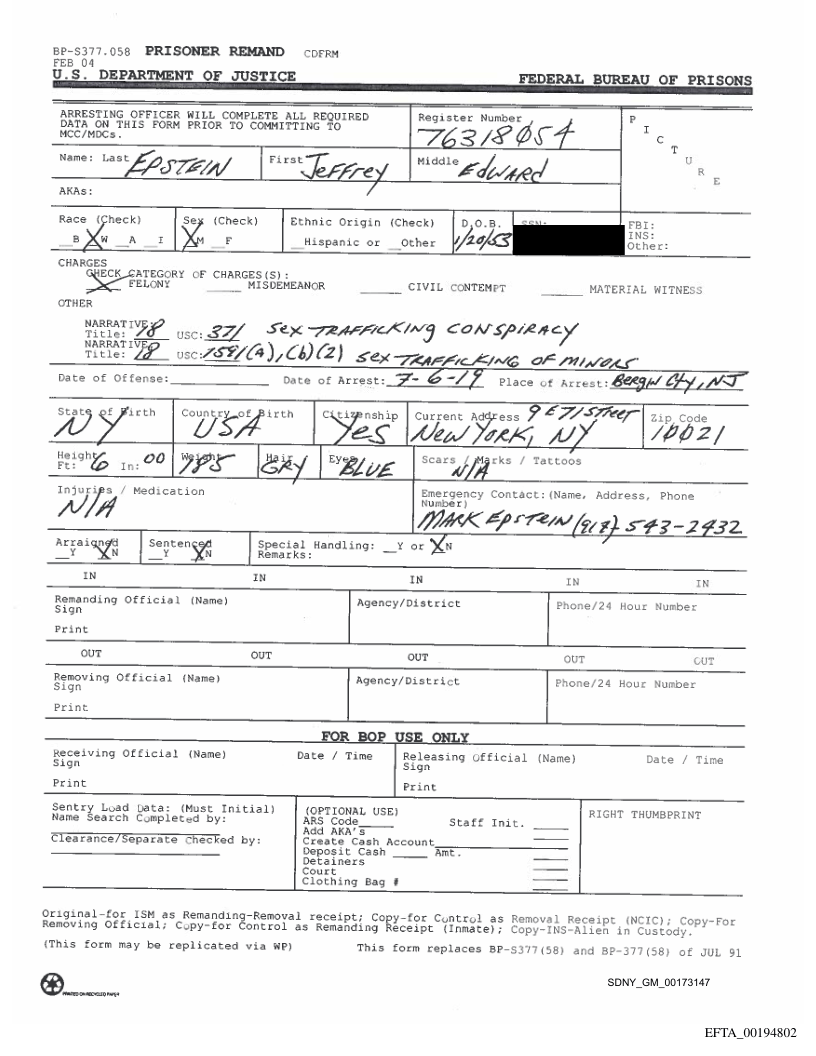 BP-S377.058 PRISONER REMAND CDFRM
FEB 04
U.S. DEPARTMENT OF JUSTICE FEDERAL BUREAU OF PRISONS
ARRESTING OFFICER WILL COMPLETE ALL REQUIRED
DATA ON THIS FORM PRIOR TO COMMITTING TO
MCC/MDCs.
Register Number
76318054
PICTURE
Name: Last EPSTEIN First Jeffrey Middle EDWARD
AKAs:
Race (Check) Sex (Check) Ethnic Origin (Check) D.O.B. SSN: FBI:
__B XW __A __I XM __F __Hispanic or __Other 1/20/53 INS:
Other:
CHARGES
CHECK CATEGORY OF CHARGES(S):
X FELONY _____ MISDEMEANOR _____ CIVIL CONTEMPT _____ MATERIAL WITNESS
OTHER
NARRATIVE:
Title: 18 USC: 371 SEX TRAFFICKING CONSPIRACY
NARRATIVE:
Title: 18 USC: 1591(A),(b)(2) SEX TRAFFICKING OF MINORS
Date of Offense:____________ Date of Arrest: 7-6-19 Place of Arrest: Bergin Cty, NJ
State of Birth Country of Birth Citizenship Current Address 9 E 71 STREET Zip Code
NY USA Yes NEW YORK, NY 10021
Height Weight Hair Eyes Scars / Marks / Tattoos
Ft: 6 In: 00 185 GRY BLUE N/A
Injuries / Medication Emergency Contact: (Name, Address, Phone
Number)
N/A MARK EPSTEIN (917) 543-2432
Arraigned Sentenced Special Handling: __Y or XN
__Y XN __Y XN Remarks:
IN IN IN IN IN
Remanding Official (Name) Agency/District Phone/24 Hour Number
Sign
Print
OUT OUT OUT OUT OUT
Removing Official (Name) Agency/District Phone/24 Hour Number
Sign
Print
FOR BOP USE ONLY
Receiving Official (Name) Date / Time Releasing Official (Name) Date / Time
Sign Sign
Print Print
Sentry Load Data: (Must Initial) (OPTIONAL USE) RIGHT THUMBPRINT
Name Search Completed by: ARS Code_____ Staff Init. _____
Add AKA's
Clearance/Separate Checked by: Create Cash Account
Deposit Cash _____ Amt.
Detainers
Court
Clothing Bag #
Original-for ISM as Remanding-Removal receipt; Copy-for Control as Removal Receipt (NCIC); Copy-For
Removing Official; Copy-for Control as Remanding Receipt (Inmate); Copy-INS-Alien in Custody.
(This form may be replicated via WP) This form replaces BP-S377(58) and BP-377(58) of JUL 91
PRINTED ON RECYCLED PAPER
SDNY_GM_00173147
EFTA_00194802